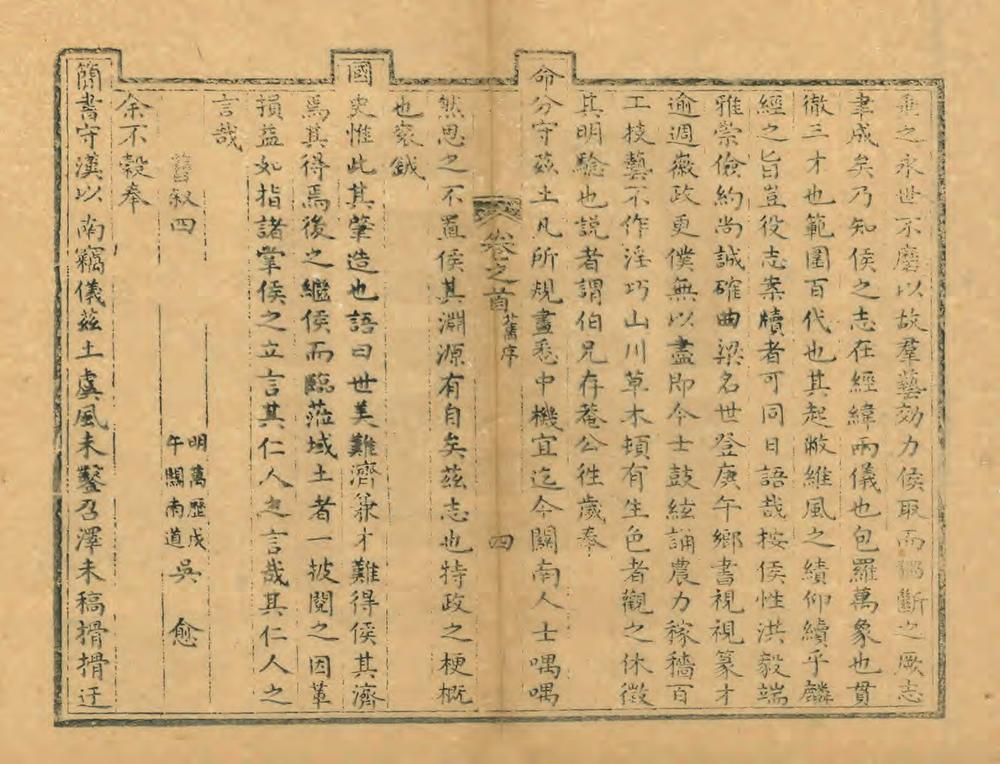 垂之永世不磨以故羣藝効力侯取而獨斷之厥志
聿成矣乃知侯之志在經緯兩儀也包羅萬象也貫
徹三才也範圍百代也其起敝維風之績仰續乎麟
經之旨豈役志案牘者可同日語哉按侯性洪毅端
雅崇儉約尚誠確曲梁名世登庚午鄉書視視篆才
逾週薇政更僕無以盡即今士鼓絃誦農力稼穡百
工技藝不作淫巧山川草木頓有生色者觀之休徵
其明驗也説者謂伯兄存菴公徃歲奉
命分守茲土凡所規畫悉中機宜迄今關南人士喁喁
卷之首 舊序 四
然思之不置侯其淵源有自矣茲志也特政之梗概
也袞鉞
國史惟此其肇造也語曰世美難濟兼才難得侯其濟
焉其得焉後之繼侯而臨蒞域土者一披閱之因革
損益如指諸掌侯之立言其仁人之言哉其仁人之
言哉
舊叙四
明萬歷戊午關南道吳愈
余不穀奉
簡書守漢以南竊儀茲土虞風未鑿召澤未稿搰搰迂